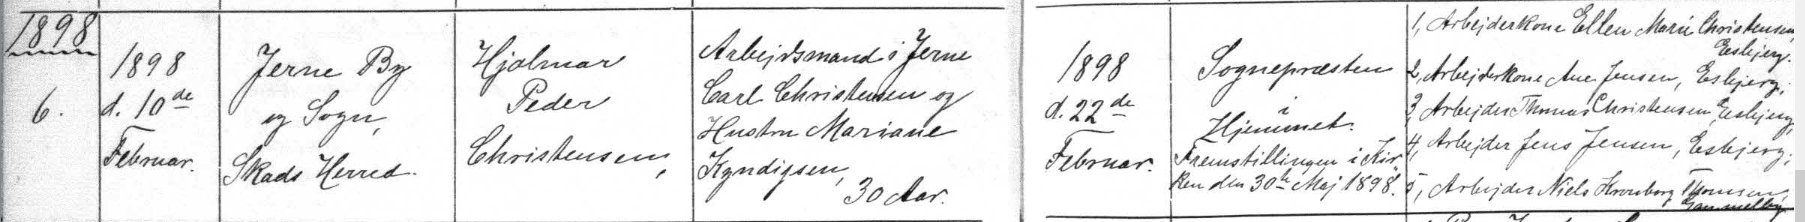 1898
6.
1898
d. 10de
Februar.
Jerne By
og Sogn,
Skads Herred.
Hjalmar
Peder
Christensen,
Arbejdsmand i Jerne
Carl Christensen og
Hustru Mariane
Kyndigsen,
30 Aar.
1898
d. 22de
Februar.
Sognepræsten
i
Hjemmet.
Fremstillingen i Kir-
ken den 30te Maj 1898.
1, Arbejderkone Ellen Marie Christensen,
Esbjerg.
2, Arbejderkone Ane Jensen, Esbjerg;
3, Arbejder Thomas Christensen, Esbjerg,
4, Arbejder Jens Jensen, Esbjerg;
5, Arbejder Niels Kronborg Thomsen,
Gammelby.